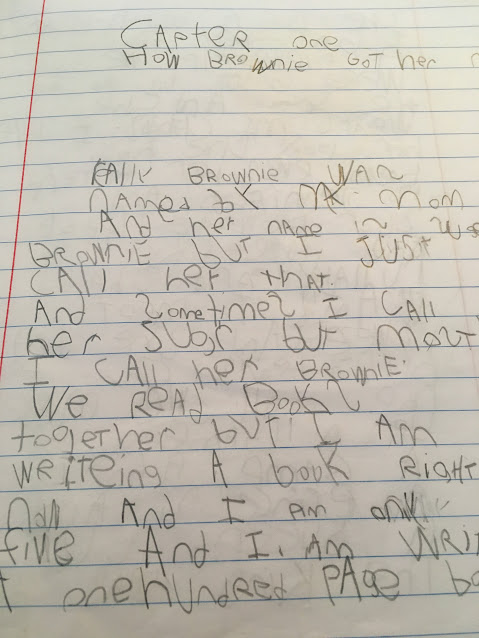 CAPTER one
HOW BROWNIE GOT her
BROWNIE WAS
NAMeD by MY MOM
AND her NAMe is
BROWNIE bUT I JUST
CAll her thAT.
And SOMeTIMeS I CAll
her bUT MOST
I CAll her BROWNIE.
We ReAD BooKS
together bUT I AM
WRITEing A booK RIGHT
AND I AM only
fiVE AnD I. AM WRIT
onehunDreD PAGe bo